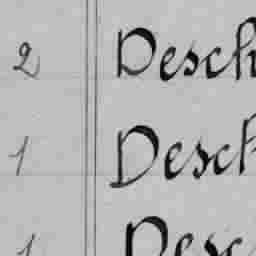 2 Desch
1 Desch
1 Desc